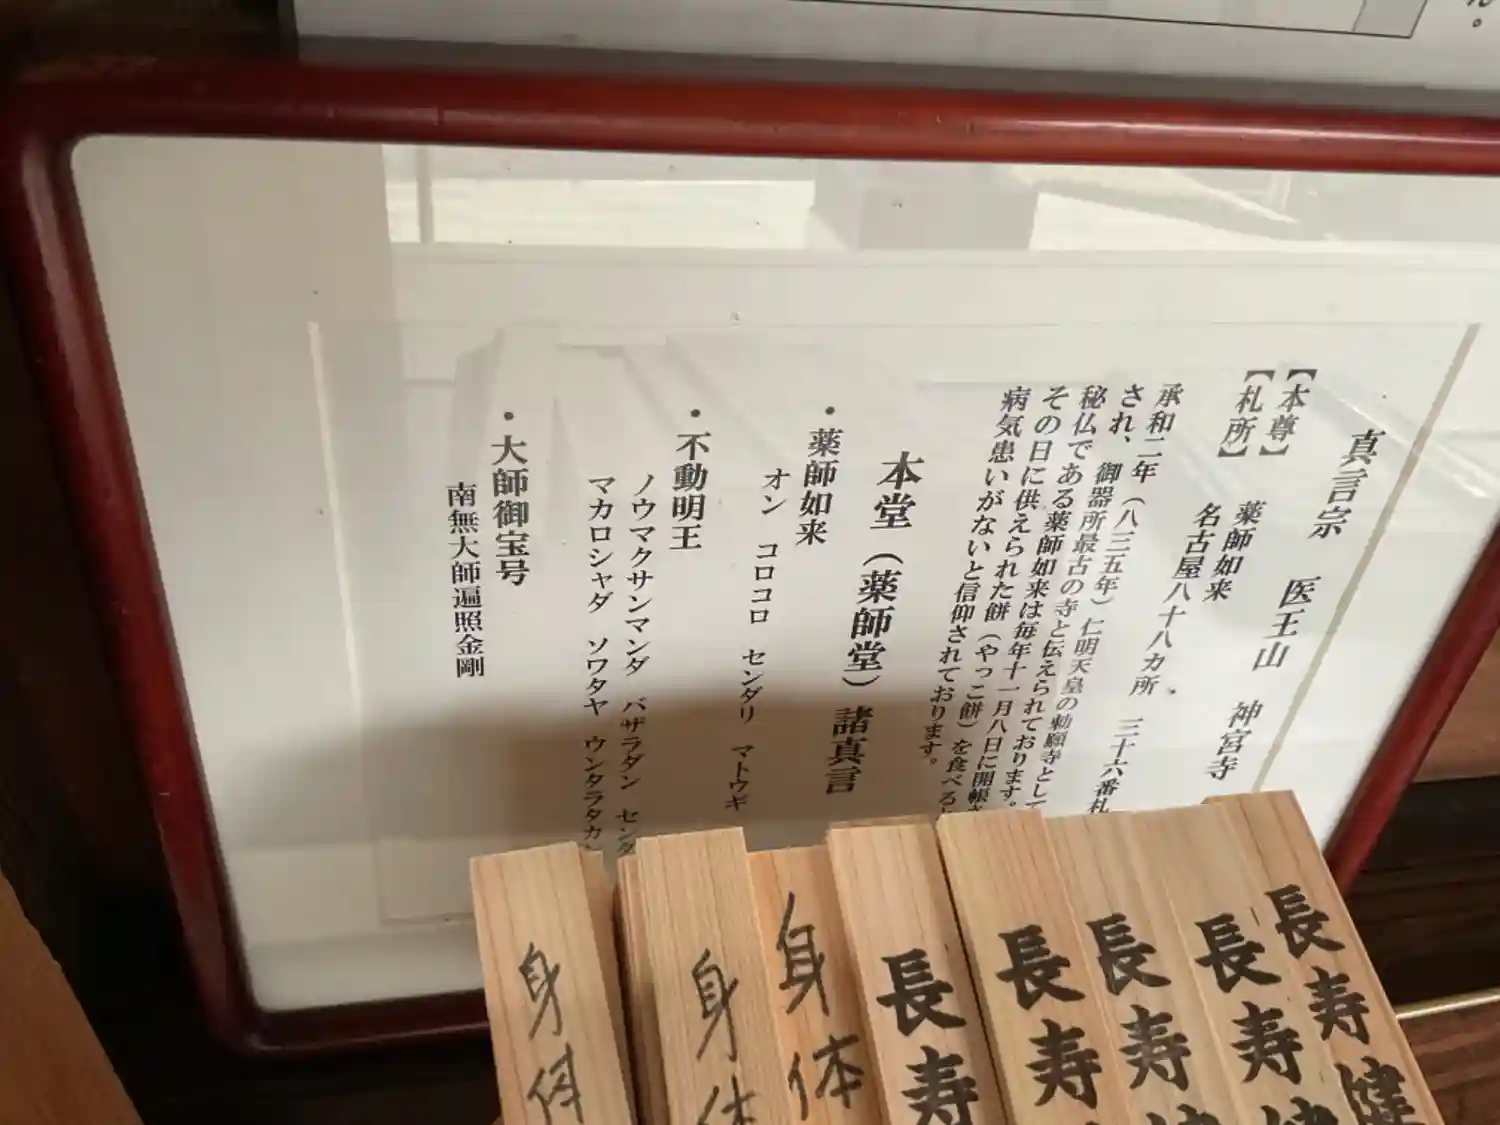 真言宗　医王山　神宮寺
【本尊】　薬師如来
【札所】　名古屋八十八カ所　三十六番札
承和二年（八三五年）仁明天皇の勅願寺として
され、御器所最古の寺と伝えられております。
秘仏である薬師如来は毎年十一月八日に開帳さ
その日に供えられた餅（やっこ餅）を食べると
病気患いがないと信仰されております。
本堂（薬師堂）諸真言
・薬師如来
オン　コロコロ　センダリ　マトウギ
・不動明王
ノウマクサンマンダ　バザラダン　センダ
マカロシャダ　ソワタヤ　ウンタラタカン
・大師御宝号
南無大師遍照金剛
長寿健
長寿
長寿
長寿
長寿
身体
身体
身体